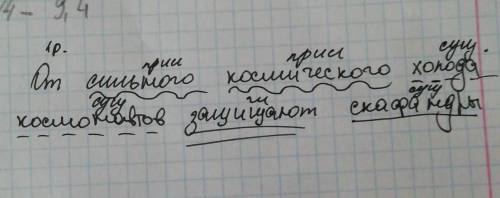 14 - 9,4
пр. прил прил сущ.
От сильного космического холода
сущ гл сущ
космонавтов защищают скафандры